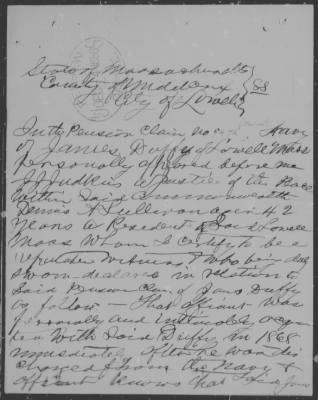 State of Massachusetts
County of Middlesex } SS
City of Lowell
In the Pension Claim No Navy
of James Duffy of Lowell Mass
Personally appeared before me
J J Judkins a Justice of the Peace
Within Said Commonwealth
A Sullivan age 42
Years a Resident of Said Lowell
Mass Whom I Certify to be a
reputable Witness & Who being duly
sworn declares in relation to
Said Pension Claim of James Duffy
as follow — That affiant was
personally and intimately acqua
With Said Duffy in 1868
immediately after he was dis
charged from the Navy &
affiant knows that said James